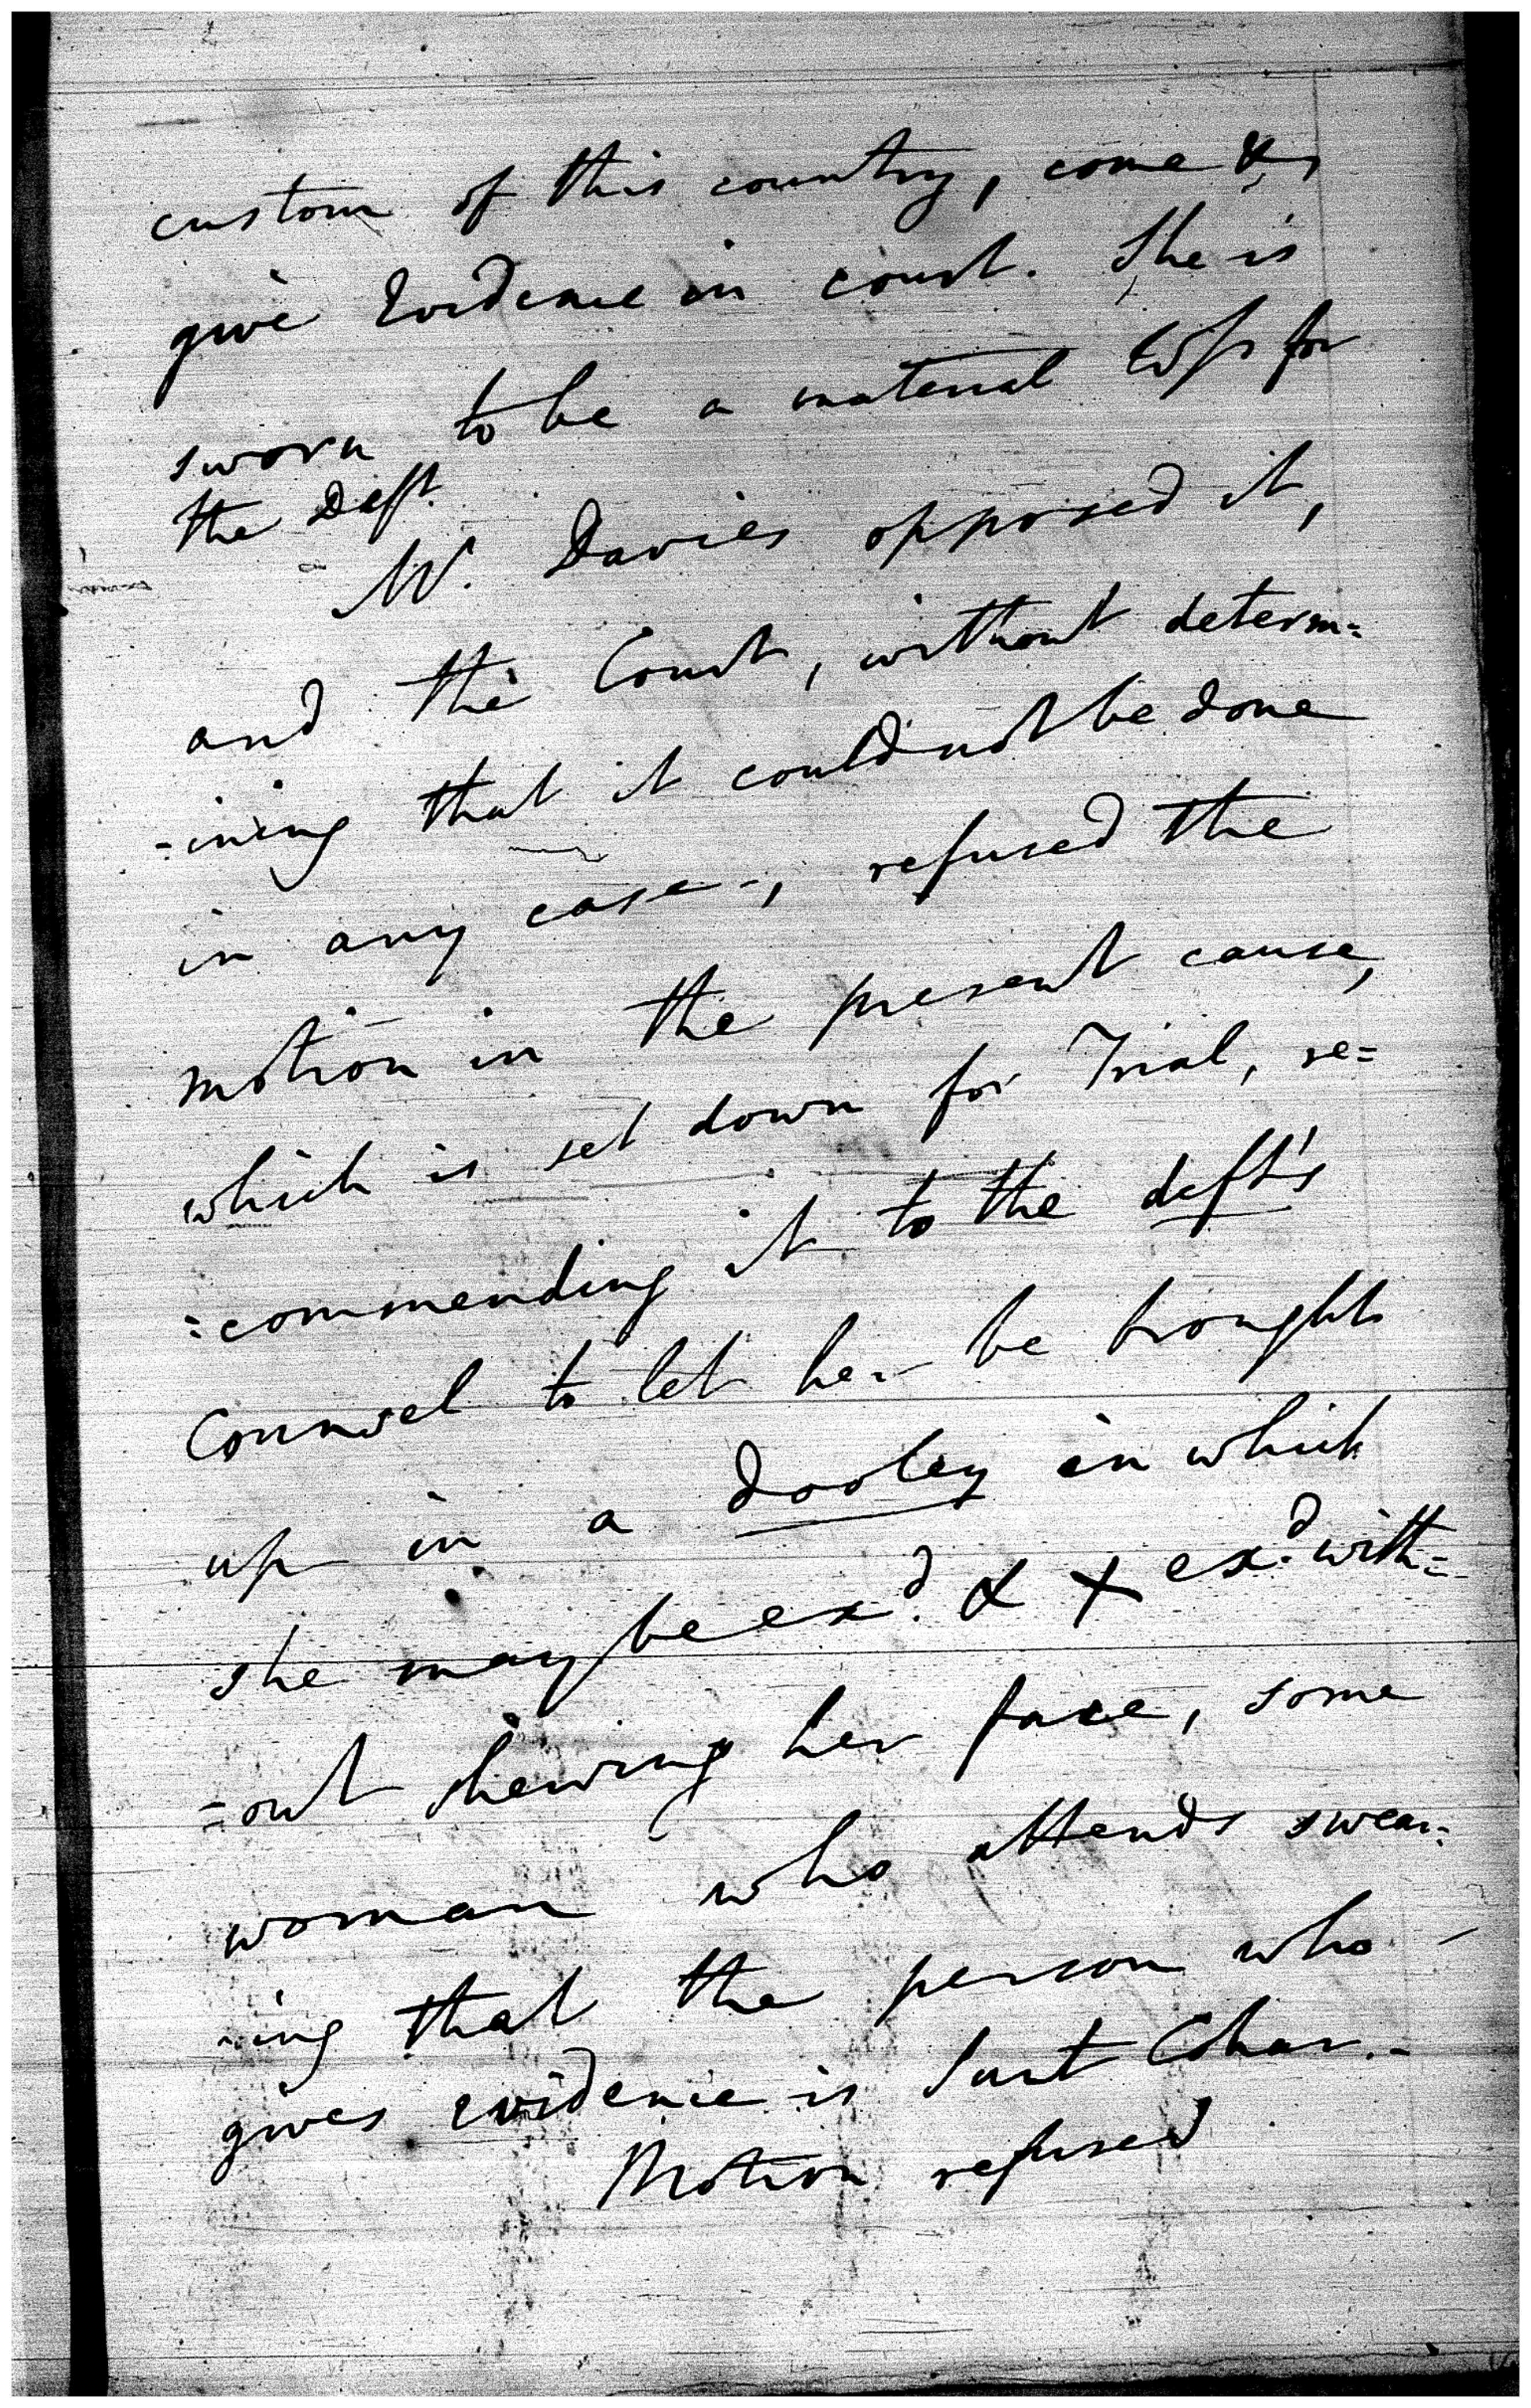 custom of this country, come &
give Evidence in court. She is
sworn to be a material Wss for
the Deft.
Mr. Davies opposed it,
and the Court, without determ=
-ining that it could not be done
in any case, refused the
motion in the present cause,
which is set down for Trial, re=
=commending it to the deft's
Counsel to let her be brought
up in a dooley in which
she may be exd. & X exd. with=
=out shewing her face, some
woman who attends swear=
-ing that the person who
gives evidence is Surt Chan.-
Motion refused